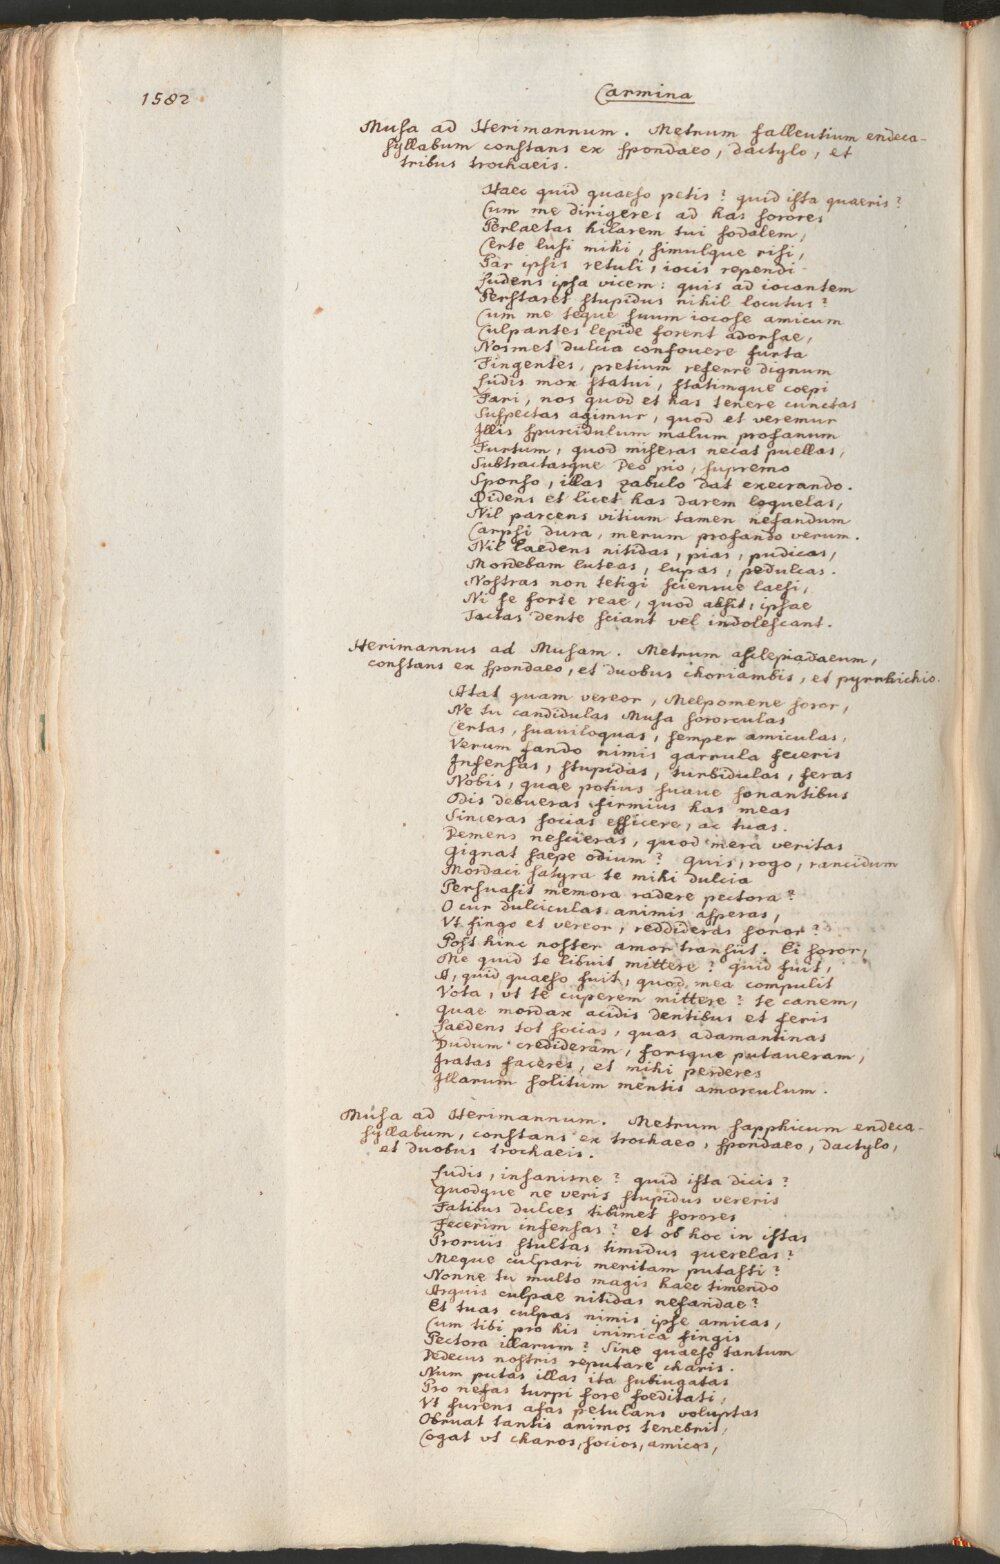 1582
Carmina
Musa ad Herimannum. Metrum falleutium endeca-
syllabum constans ex spondaeo, dactylo, et
tribus trochaeis.
Haec quid quaeso petis? quid ista quaeris?
Cum me dirigeres ad has sorores
Perlaetas hilarem tui sodalem,
Certe lusi mihi, simulque risi,
Par ipsis retuli, iocis rependi
Ludens ipsa vicem: quis ad iocantem
Perstaret stupidus nihil locutus?
Cum me teque suum iocose amicum
Culpantes lepide forent adorsae,
Nosmet dulcia confouere furta
Fingentes, pretium referre dignum
Ludis mox statui, statimque coepi
Fari, nos quod et has tenere cunctas
Suspectas agimur, quod et veremur
Illis spurcidulum malum profanum
Furtum, quod miseras necat puellas,
Subtractasque Deo pio, supremo
Sponso, illas zabulo dat execrando.
Ridens et licet has darem loquelas,
Nil parcens vitium tamen nefandum
Carpsi dura, merum profando verum.
Nil laedens nitidas, pias, pudicas,
Mordebam luteas, lupas, pedulcas.
Nostras non tetigi scienue laesi,
Ni se forte reae, quod absit, ipsae
Tactas dente sciant vel indolescant.
Herimannus ad Musam. Metrum asclepiadaeum,
constans ex spondaeo, et duobus choriambis, et pyrrhichio.
Atat quam vereor, Melpomene soror,
Ne tu candidulas Musa sororculas
Certas, suauiloquas, semper amiculas,
Verum fando nimis garrula feceris
Infensas, stupidas, turbidulas, feras
Nobis, quae potius suaue sonantibus
Odis debueras firmius has meas
Sinceras socias efficere, ac tuas.
Demens nescieras, quod mera veritas
Gignat saepe odium? quis, rogo, rancidum
Mordaci satyra te mihi dulcia
Persuasit memora radere pectora?
O cur dulciculas animis asperas,
Vt fingo et vereor, reddideras soror?
Post hinc noster amor transiit. Ei soror,
Me quid te libuit mittere? quid fuit,
A, quid quaeso fuit, quod mea compulit
Vota, vt te cuperem mittere? te canem,
Quae mordax acidis dentibus et feris
Laedens tot socias, quas adamantinas
Dudum credideram, forsque putaueram,
Iratas faceres, et mihi perderes
Illarum solitum mentis amorculum.
Musa ad Herimannum. Metrum sapphicum endeca-
syllabum, constans ex trochaeo, spondaeo, dactylo,
et duobus trochaeis.
Ludis, insanisne? quid ista dicis?
Quodque ne veris stupidus vereris
Fatibus dulces tibimet sorores
Fecerim infensas? et ob hoc in istas
Proruis stultas timidus querelas?
Meque culpari meritam putasti?
Nonne tu multo magis haec timendo
Arguis culpae nitidas nefandae?
Et tuas culpas nimis ipse amicas,
Cum tibi pro his inimica fingis
Pectora illarum? Sine quaeso tantum
Dedecus nostris reputare charis.
Num putas illas ita subiugatas
Pro nefas turpi fore foeditati,
Vt furens asas petulans voluptas
Obruat tantis animos tenebris,
Cogat vt charos, socios, amicos,